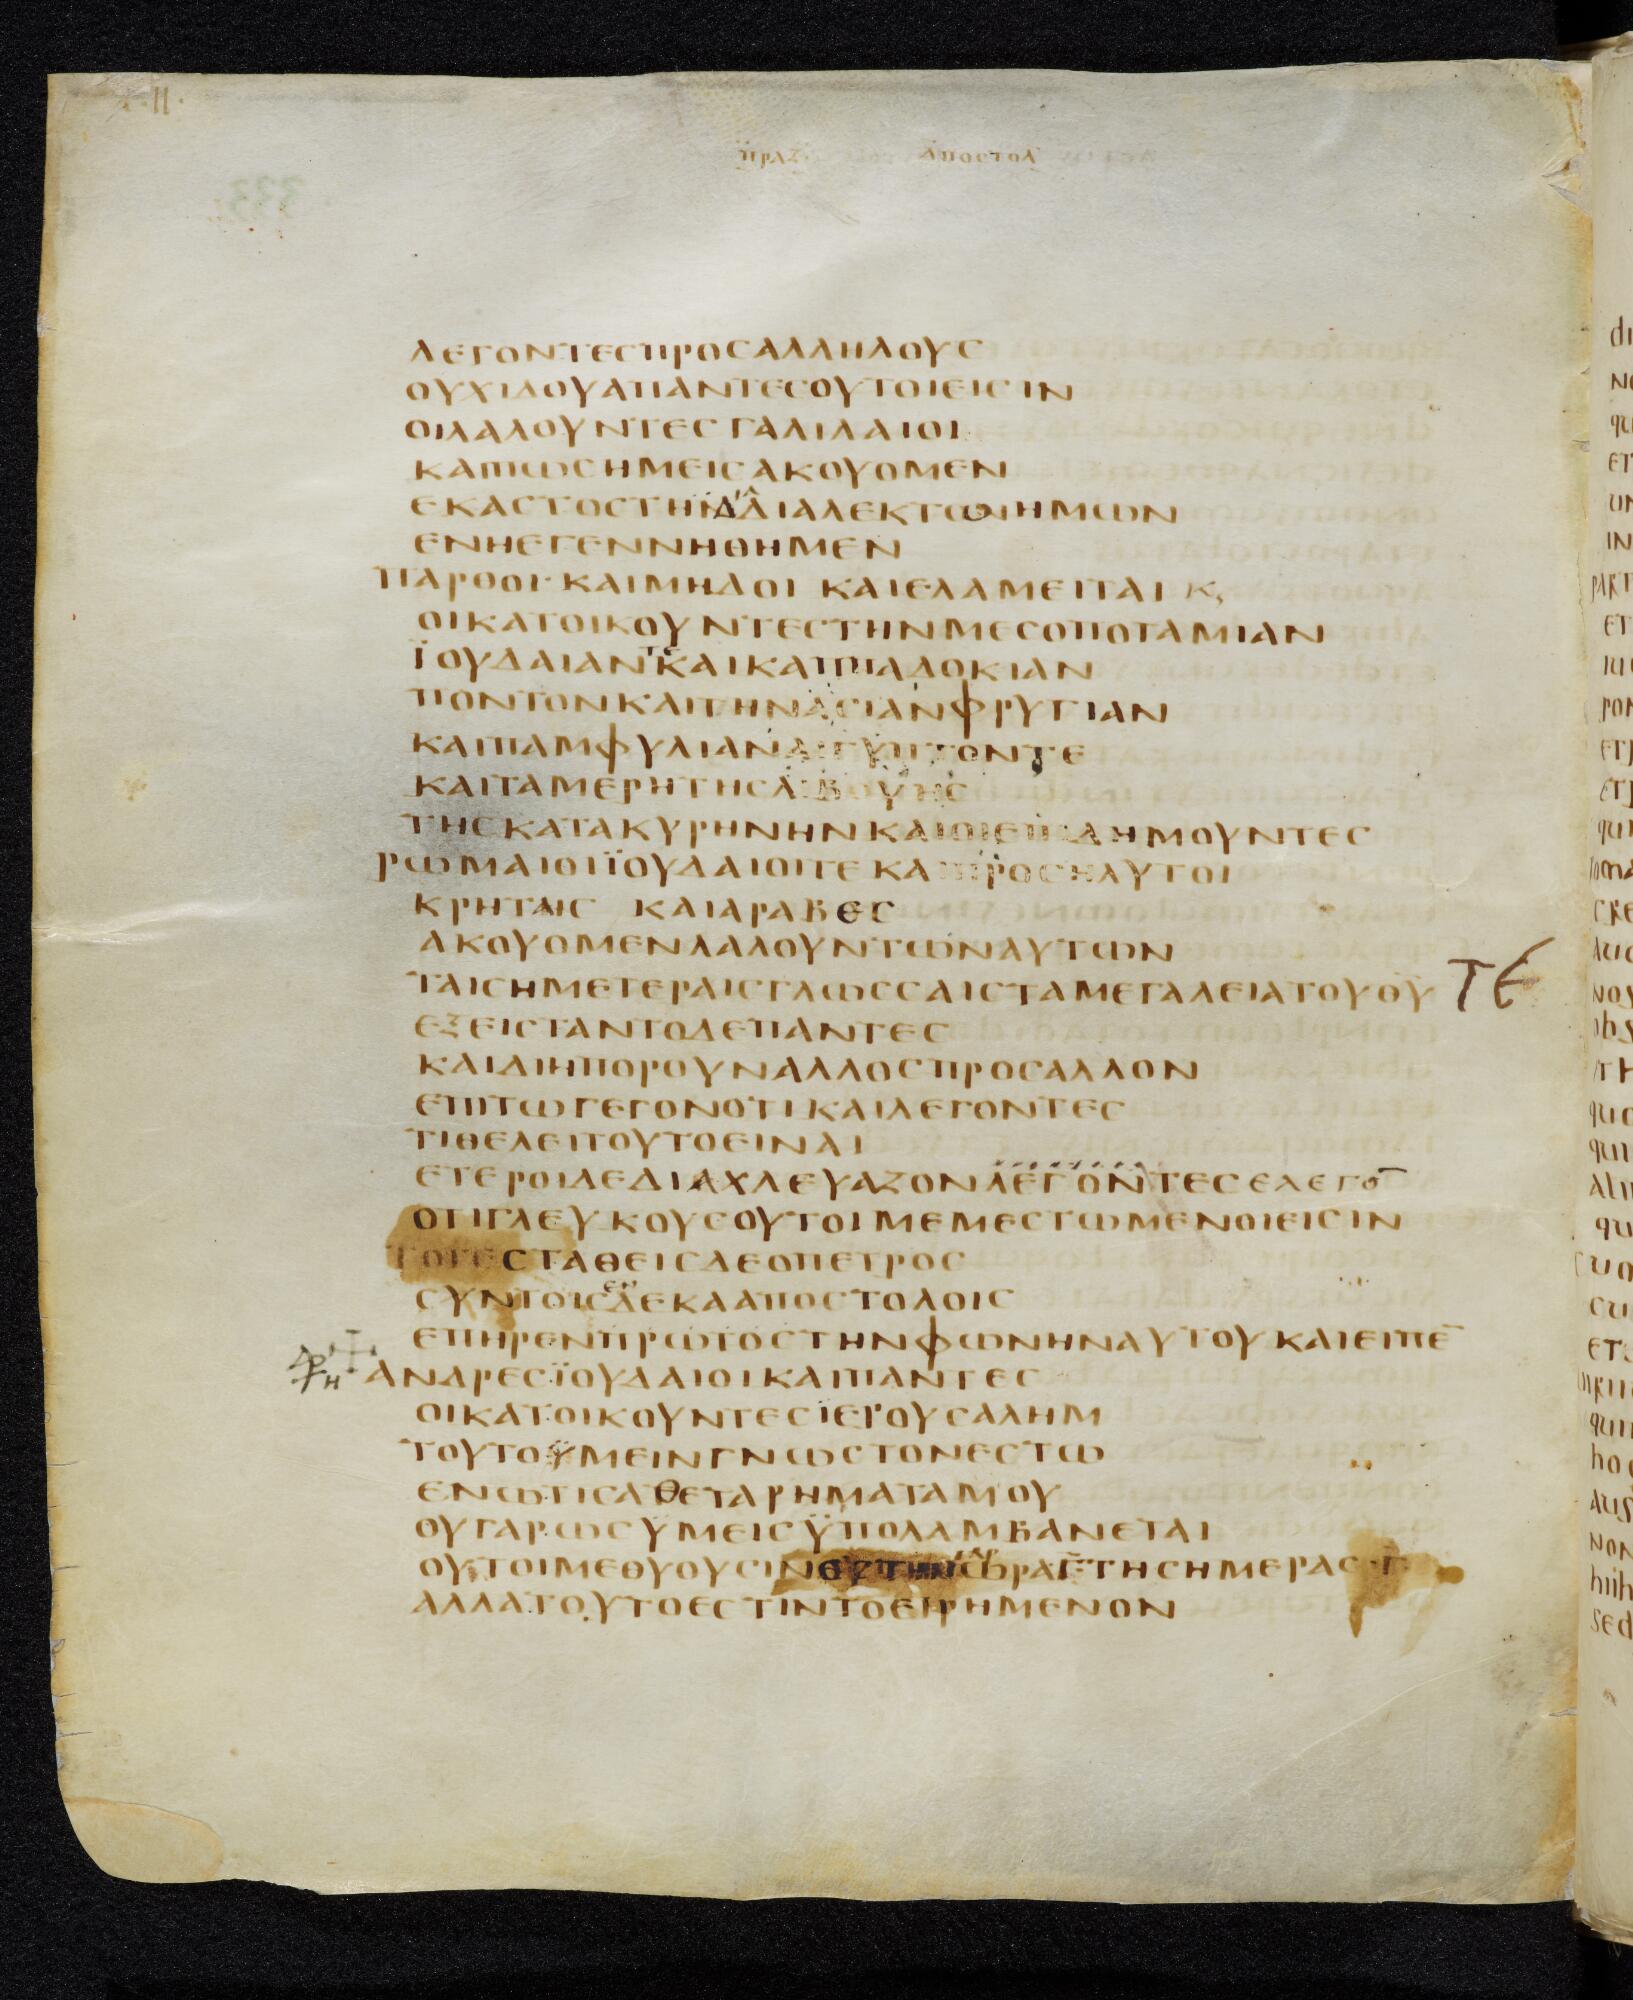 ΠΡΑΞ ΑΠΟΣΤΟΛ
ΛΕΓΟΝΤΕϹΠΡΟϹΑΛΛΗΛΟΥϹ
ΟΥΧΙΔΟΥΑΠΑΝΤΕϹΟΥΤΟΙΕΙϹΙΝ
ΟΙΛΑΛΟΥΝΤΕϹΓΑΛΙΛΑΙΟΙ
ΚΑΙΠΩϹΗΜΕΙϹΑΚΟΥΟΜΕΝ
ΕΚΑϹΤΟϹΤΗΙΔΙΑΛΕΚΤΩΗΜΩΝ
ΕΝΗΕΓΕΝΝΗΘΗΜΕΝ
ΠΑΡΘΟΙ·ΚΑΙΜΗΔΟΙ ΚΑΙΕΛΑΜΕΙΤΑΙ Κ,
ΟΙΚΑΤΟΙΚΟΥΝΤΕϹΤΗΝΜΕϹΟΠΟΤΑΜΙΑΝ
ΪΟΥΔΑΙΑΝ ΤΕ ΚΑΙΚΑΠΠΑΔΟΚΙΑΝ
ΠΟΝΤΟΝΚΑΙΤΗΝΑϹΙΑΝΦΡΥΓΙΑΝ
ΚΑΙΠΑΜΦΥΛΙΑΝΑΙΓΥΠΤΟΝΤΕ
ΚΑΙΤΑΜΕΡΗΤΗϹΛΙΒΟΥΗϹ
ΤΗϹΚΑΤΑΚΥΡΗΝΗΝΚΑΙΟΙΕΠΙΔΗΜΟΥΝΤΕϹ
ΡΩΜΑΙΟΙΪΟΥΔΑΙΟΙΤΕΚΑΙΠΡΟϹΗΛΥΤΟΙ
ΚΡΗΤΗϹ ΚΑΙΑΡΑΒΕϹ
ΑΚΟΥΟΜΕΝΛΑΛΟΥΝΤΩΝΑΥΤΩΝ
ΤΑΙϹΗΜΕΤΕΡΑΙϹΓΛΩϹϹΑΙϹΤΑΜΕΓΑΛΕΙΑΤΟΥΘΥ ΤΕ
ΕΞΕΙϹΤΑΝΤΟΔΕΠΑΝΤΕϹ
ΚΑΙΔΙΗΠΟΡΟΥΝΑΛΛΟϹΠΡΟϹΑΛΛΟΝ
ΕΠΙΤΩΓΕΓΟΝΟΤΙΚΑΙΛΕΓΟΝΤΕϹ
ΤΙΘΕΛΕΙΤΟΥΤΟΕΙΝΑΙ
ΕΤΕΡΟΙΔΕΔΙΑΧΛΕΥΑΖΟΝΛΕΓΟΝΤΕϹ ΕΛΕΓΟ̅
ΟΤΙΓΛΕΥΚΟΥϹΟΥΤΟΙΜΕΜΕϹΤΩΜΕΝΟΙΕΙϹΙΝ
ΤΟΤΕϹΤΑΘΕΙϹΔΕΟΠΕΤΡΟϹ
ϹΥΝΤΟΙϹ ΕΝ ΔΕΚΑΑΠΟϹΤΟΛΟΙϹ
ΕΠΗΡΕΝΠΡΩΤΟϹΤΗΝΦΩΝΗΝΑΥΤΟΥΚΑΙΕΙΠΕ̅
ΑΝΔΡΕϹΪΟΥΔΑΙΟΙΚΑΙΠΑΝΤΕϹ
ΟΙΚΑΤΟΙΚΟΥΝΤΕϹΪΕΡΟΥϹΑΛΗΜ
ΤΟΥΤΟΫΜΕΙΝΓΝΩϹΤΟΝΕϹΤΩ
ΕΝΩΤΙϹΑΘΕΤΑΡΗΜΑΤΑΜΟΥ
ΟΥΓΑΡΩϹΫΜΕΙϹΫΠΟΛΑΜΒΑΝΕΤΑΙ
ΟΥΤΟΙΜΕΘΥΟΥϹΙΝ ΩΡΑ ΤΗϹΗΜΕΡΑϹ·Γ
ΑΛΛΑΤΟΥΤΟΕϹΤΙΝΤΟΕΙΡΗΜΕΝΟΝ